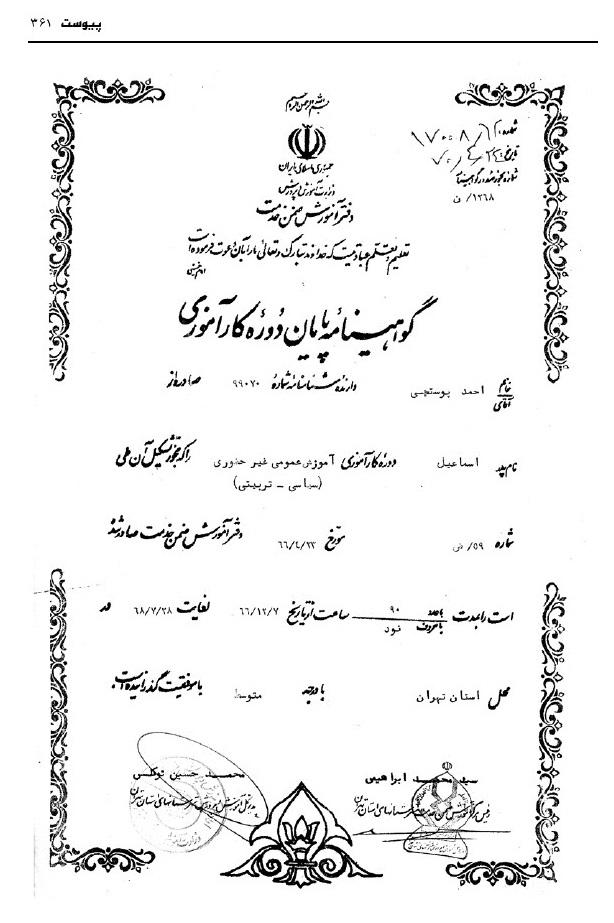 پیوست ۳۶۱
بسم الله الرحمن الرحیم
شماره: ۱۷۰۰۸/۱
تاریخ:
شماره مجوز صدور گواهینامه
۱۲۶۸/ ن
جمهوری اسلامی ایران
وزارت آموزش و پرورش
دفتر آموزش ضمن خدمت
تعلیم و تعلم عبادتیست که خداوند تبارک و تعالی ما را بآن دعوت فرموده است
امام خمینی
گواهینامه پایان دوره کارآموزی
خانم
آقای احمد پوستچی دارنده شناسنامه شماره ۹۹۰۷۰ صادره از
نام پدر اسماعیل دوره کارآموزی آموزش عمومی غیر حضوری را که مجوز تشکیل آن طی
(سیاسی - تربیتی)
شماره ۵۹/ ض مورخ ۶۶/۴/۲۳ دفتر آموزش ضمن خدمت صادر شده
است را بمدت باعدد ۹۰ ساعت از تاریخ ۶۶/۱۲/۷ لغایت ۶۸/۷/۲۸ در
باحروف نود
محل استان تهران با درجه متوسط با موفقیت گذرانیده است.
سید محمد ابراهیمی
محمد حسین توکلی